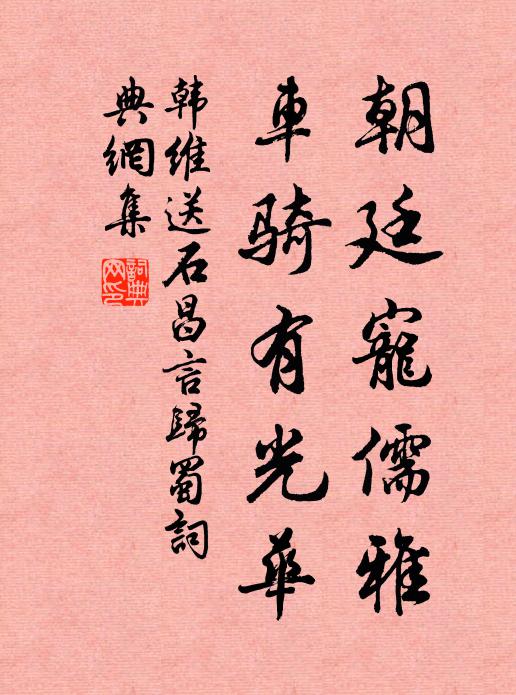 朝廷寵儒雅
車騎有光華
韩維送石昌言歸蜀詞
典網集
詞典网印